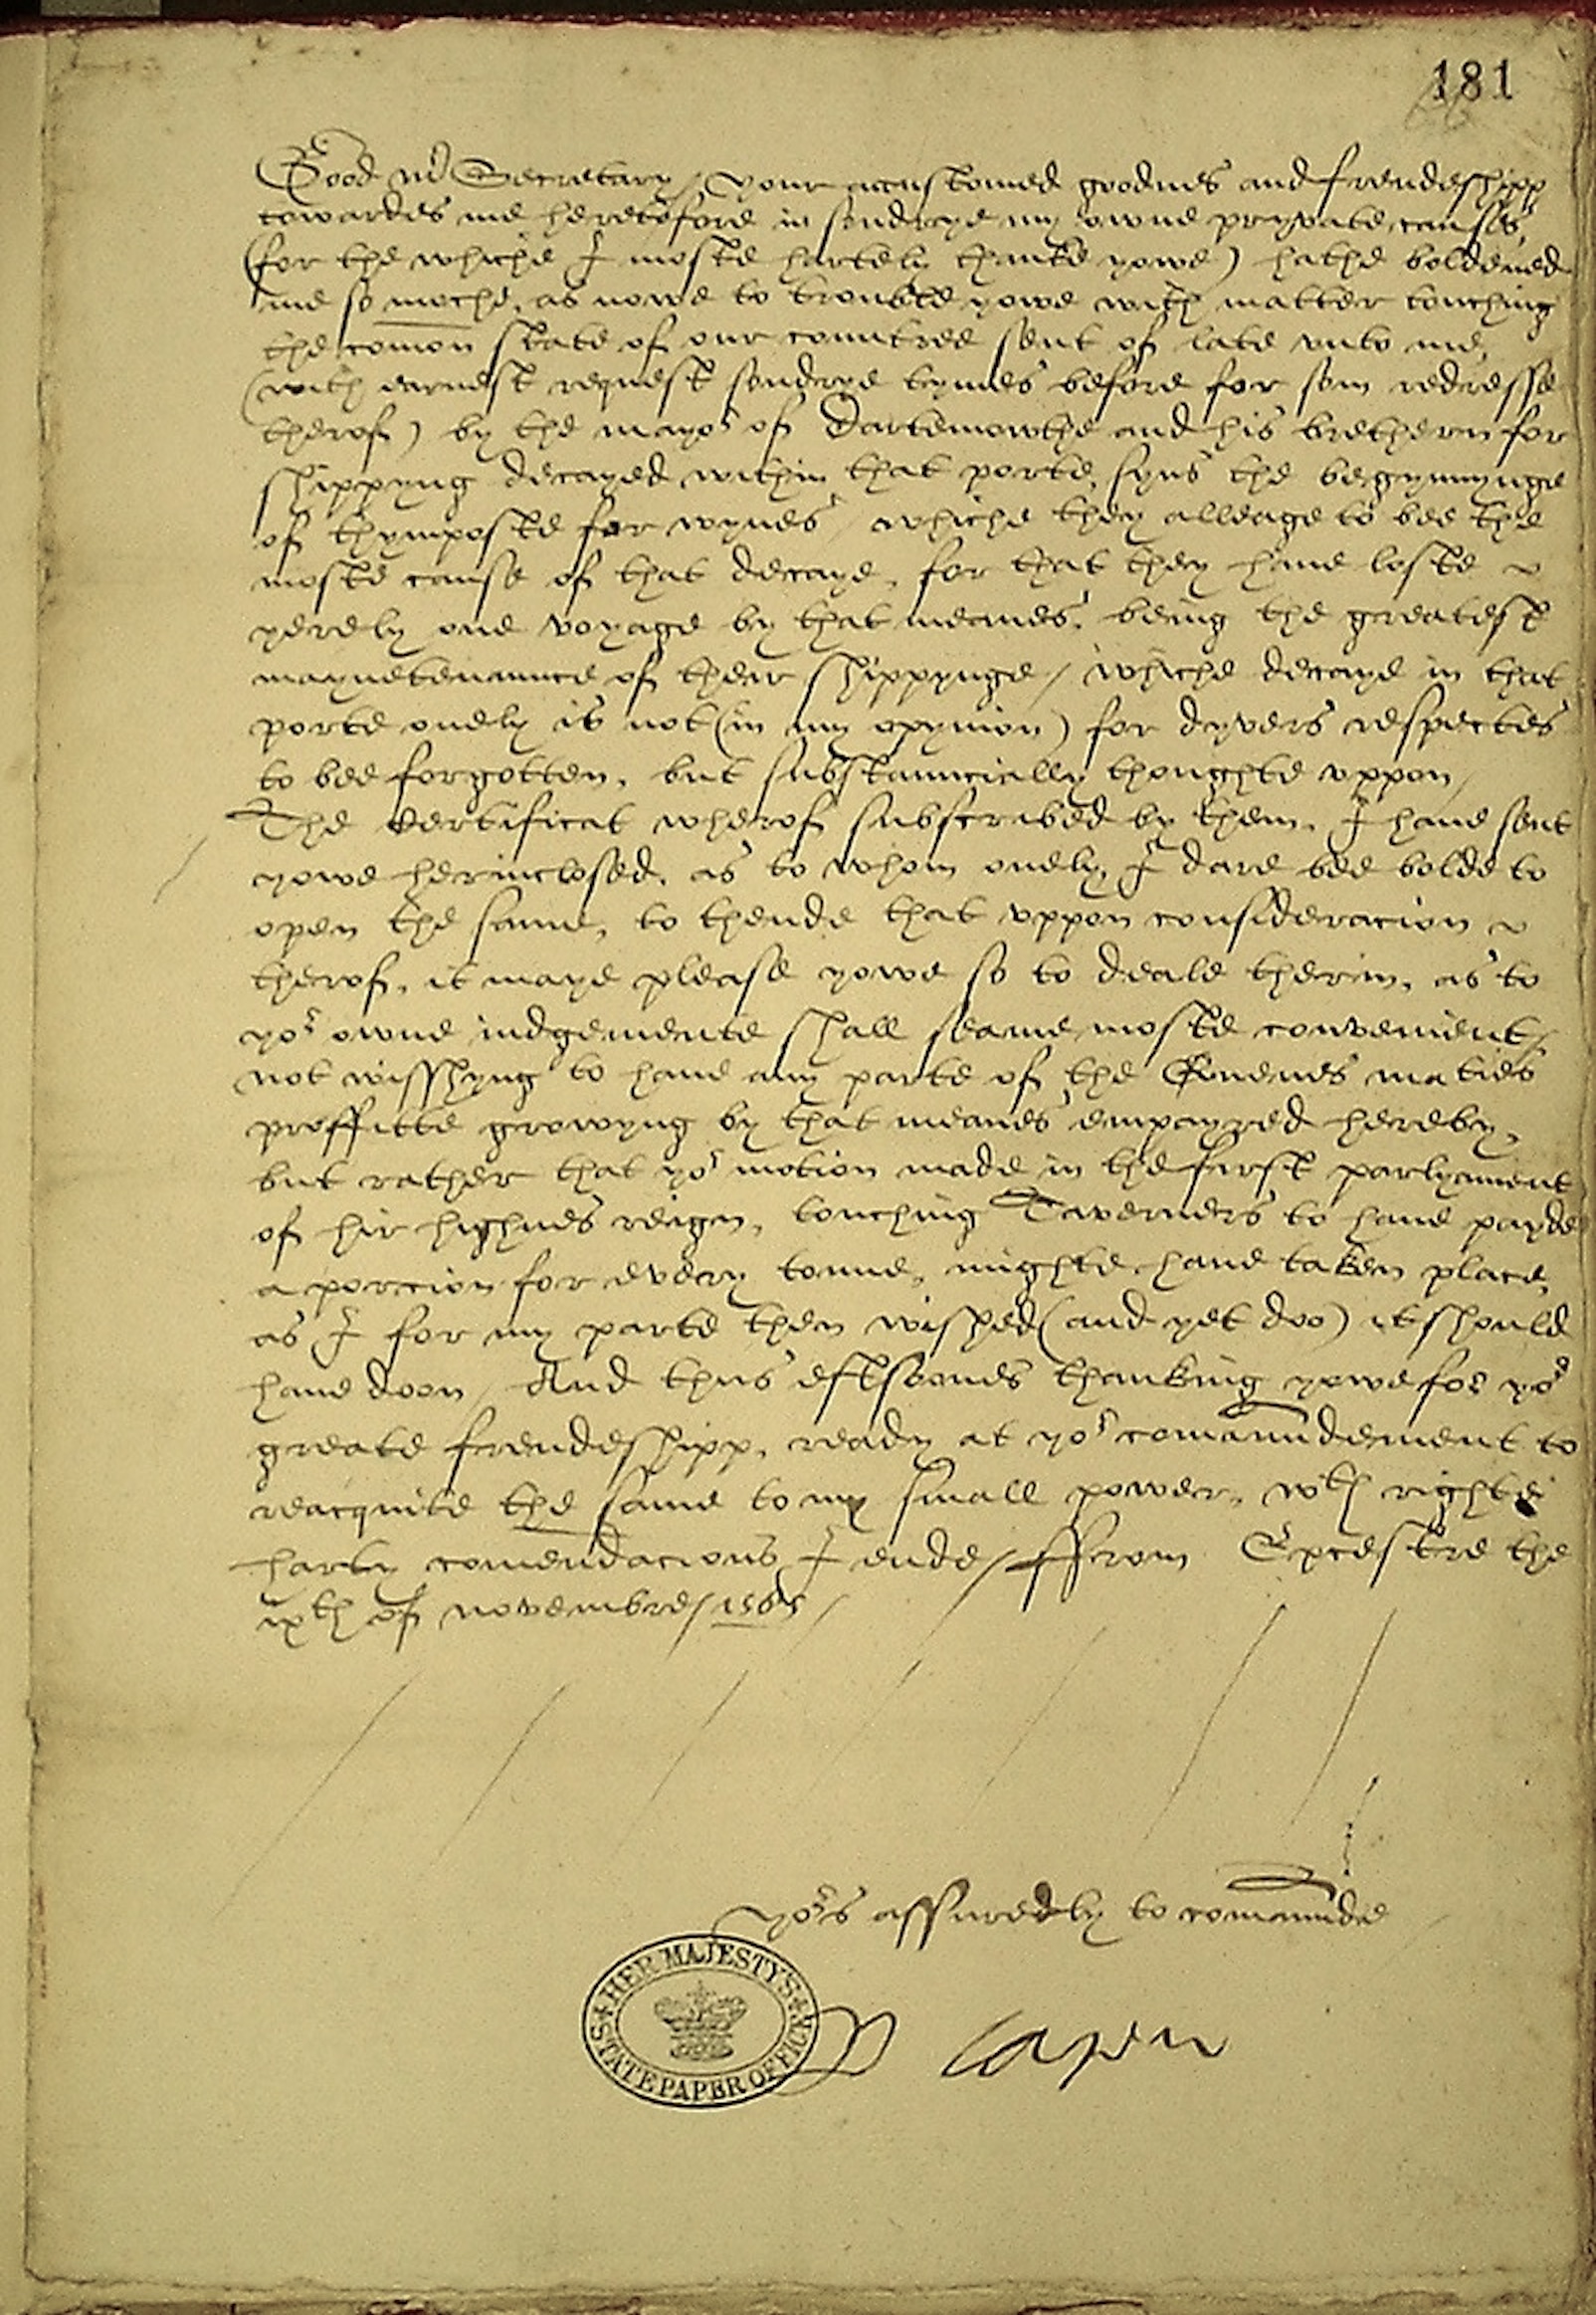 181
Good mr Secretary / Your accustomed goodnes and frendeshipp
towardes me heretofore in sondrye my owne pryvate causes,
(for the whiche I moste hartely thanke yowe) hathe boldened
me so moche, as nowe to trouble yowe with matter touching
the comon state of our countree sent of late unto me,
(with earnest request sondrye tymes before for som redresse
therof) by the mayor of Dartemowthe and his brethern for
shippyng decayed within that porte, syns the begynnynge
of thymposte for wynes / whiche they alleage to bee the
moste cause of that decaye, for that they have loste
yerely one voyage by that meanes, being the greatest
maynetenaunce of their shippynge / whiche decaye in that
porte onely is not (in my opynion) for dyvers respectes
to bee forgotten, but substauncially thoughte uppon /
The certificat wherof subscribed by them, I have sent
yowe herinclosed, as to whom onely, I dare bee bolde to
open the same, to thende that uppon consideracion
therof, it maye please yowe so to deale therin, as to
yor owne iudgemente shall seame moste convenient /
not wisshyng to have any parte of the Quenes maties
proffitte growyng by that meanes empayred hereby,
but rather that yor motion made in the first parlyament
of hir highnes reign, touching Taverners to have payde
a porcion for every tonne, mighte have taken place,
as I for my parte then wished (and yet doo) it should
have doon / And thus eftsoones thanking yowe for yor
greate frendeshipp, ready at yor comaundement to
reacquite the same to my small power, wth righte
harty comendacions I ende / ffrom Excestre the
ixth of novembre / 1565 /
yors assuredly to comaunde
HER MAJESTY'S STATE PAPER OFFICE